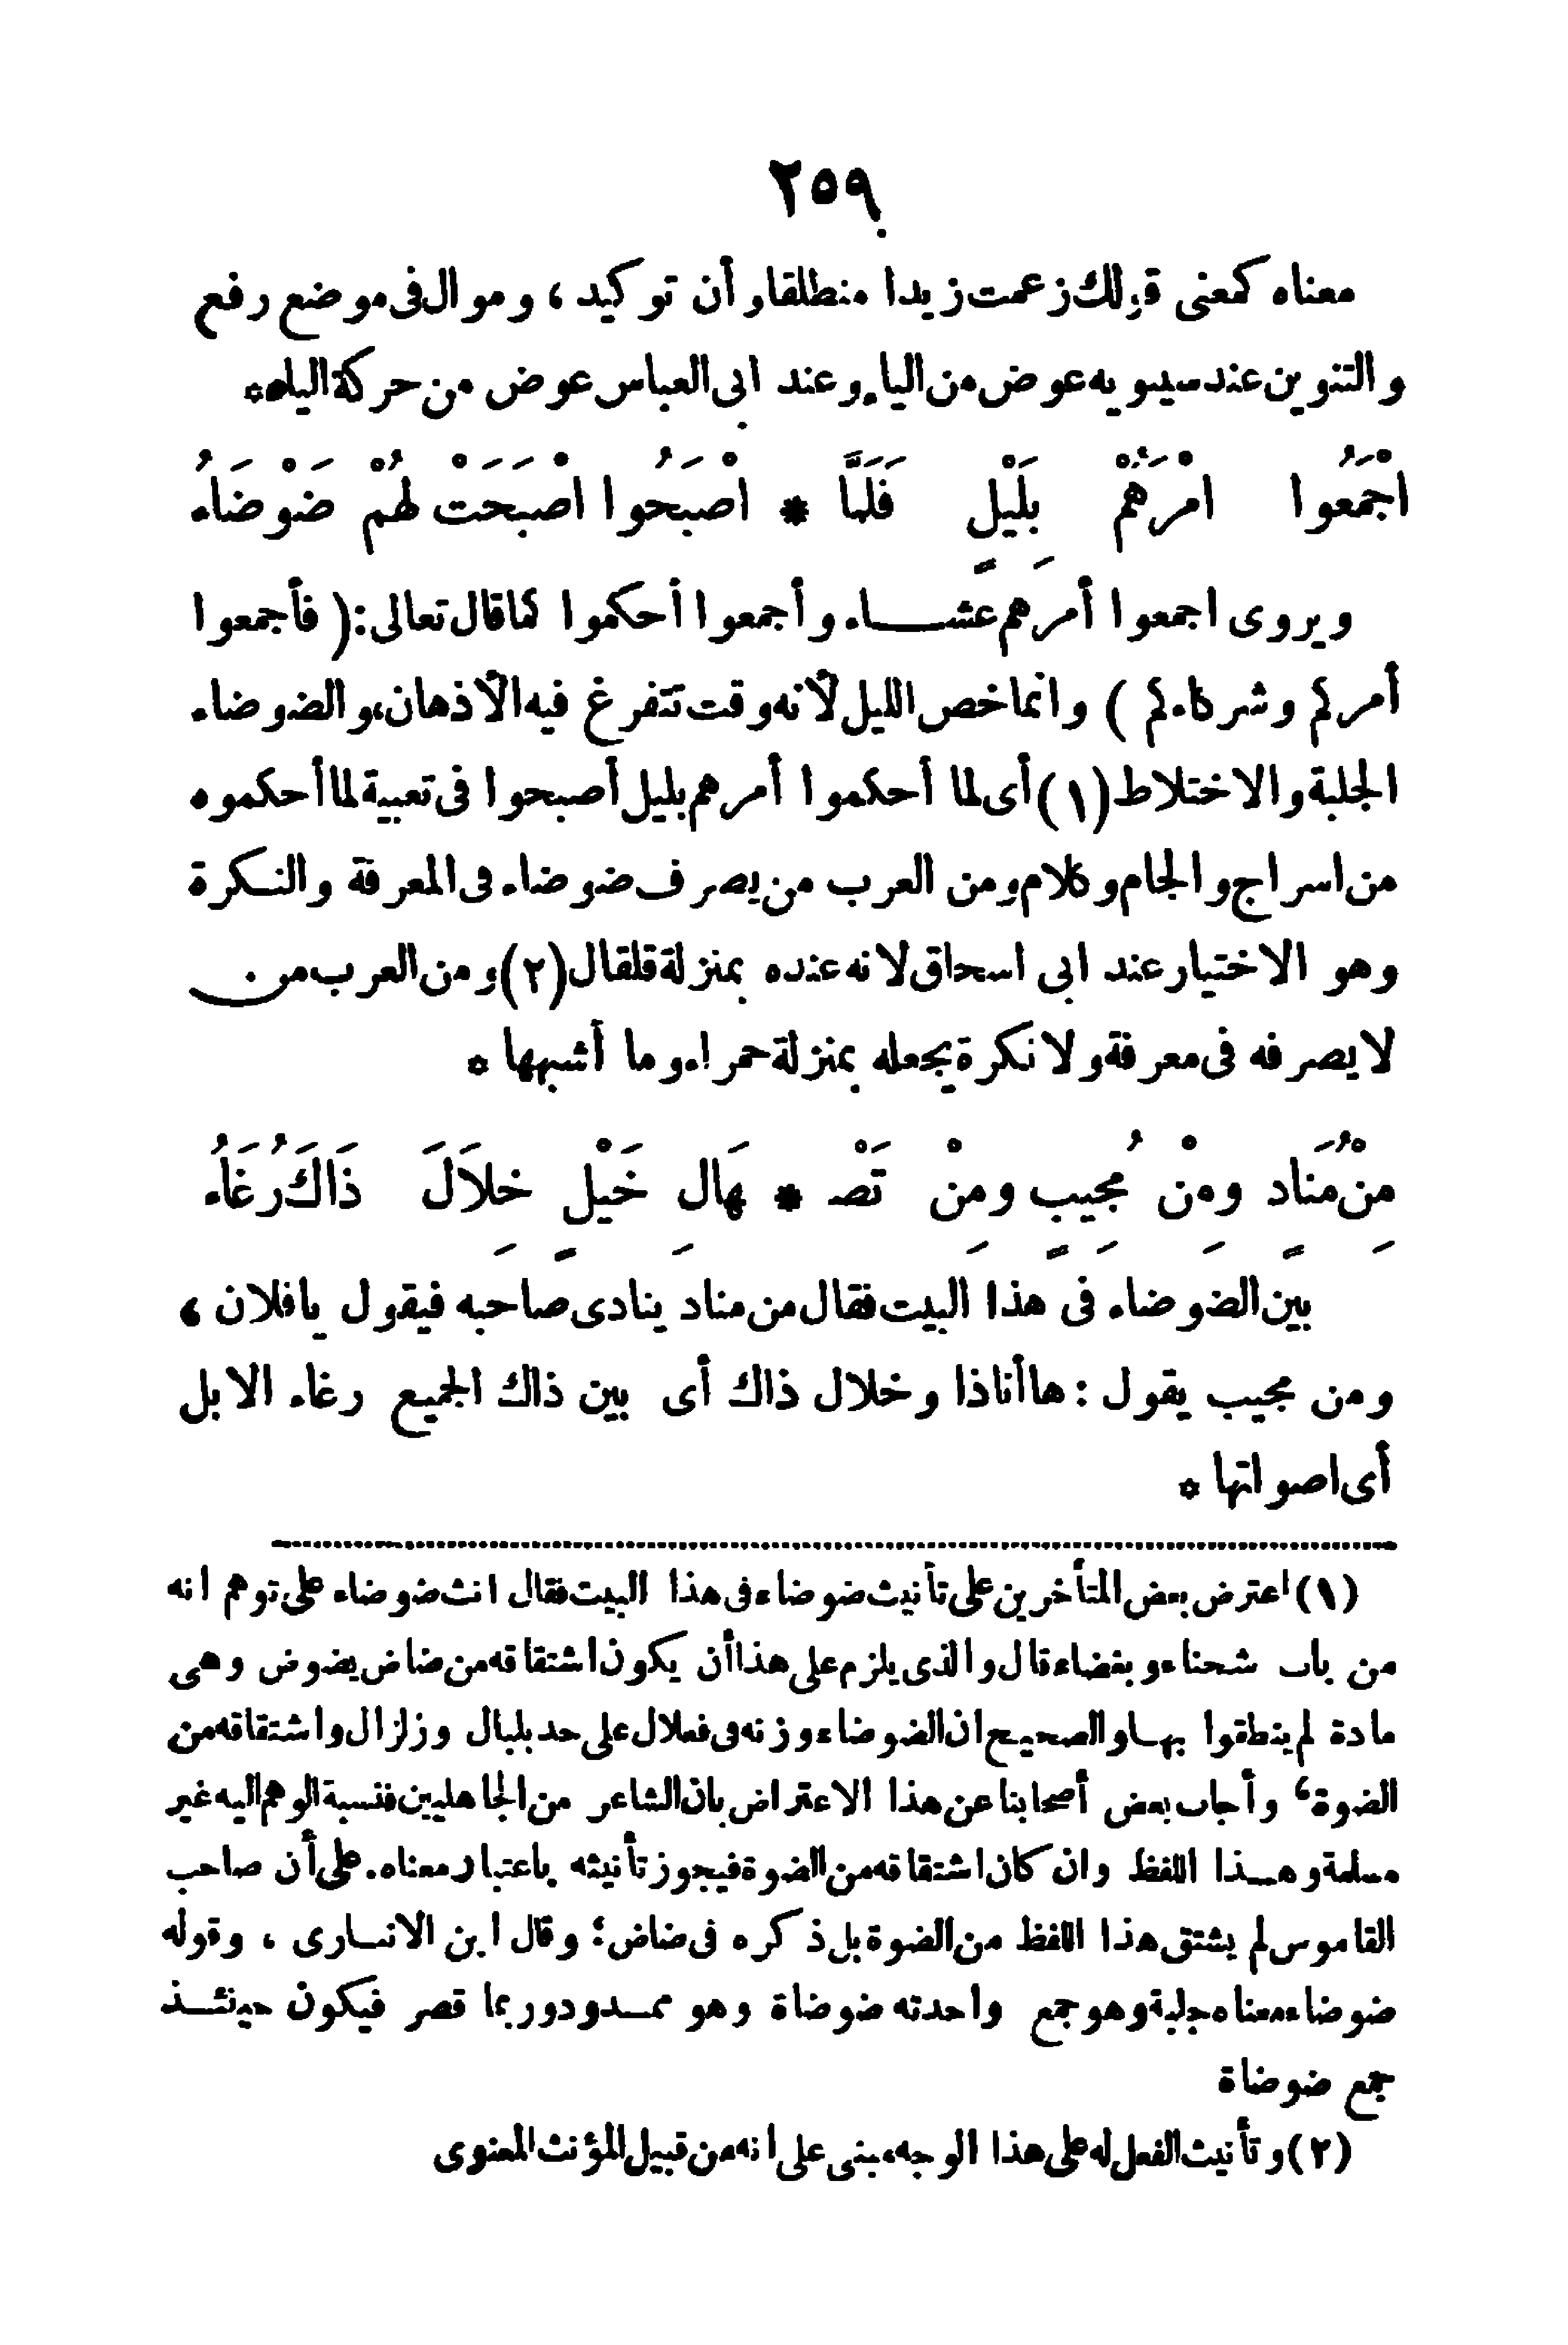 ٢٥٩
معناه كمعنى قولك زعمت زيدا منطلقا وأن توكيد ، وموال فى موضع رفع
والتنوين عند سيبويه عوض من الياء وعند ابى العباس عوض من حركة الياء *
اجْمَعُوا امْرَهُمْ بِلَيْلٍ فَلَمَّا * اصْبَحُوا اصْبَحَتْ لهُمْ ضَوْضَاءُ
ويروى اجمعوا أمرهم عشـاء وأجمعوا أحكموا كما قال تعالى: ( فأجمعوا
أمركم وشركاءكم ) وانما خص الليل لأنه وقت تتفرغ فيه الأذهان، والضوضاء
الجلبة والاختلاط (١) أى لما أحكموا أمرهم بليل أصبحوا فى تعبية لما أحكموه
من اسراج والجام وكلام ومن العرب من يصرف ضوضاء فى المعرفة والنكرة
وهو الاختيار عند ابى اسحاق لانه عنده بمنزلة قلقال (٢) ومن العرب من
لا يصرفه فى معرفة ولا نكرة يجعله بمنزلة حمراء وما أشبهها *
مِنْ مُنَادٍ ومِنْ مُجِيبٍ ومِنْ تَصْـ * هَالِ خَيْلٍ خِلاَلَ ذَاكَ رُغَاءُ
بين الضوضاء فى هذا البيت فقال من مناد ينادى صاحبه فيقول يافلان ،
ومن مجيب يقول : ها أناذا وخلال ذاك أى بين ذاك الجميع رغاء الابل
أى اصواتها *
(١) اعترض بعض المتأخرين على تأنيث ضوضاء فى هذا البيت فقال انث ضوضاء على توهم انه
من باب شحناء وبغضاء قال والذى يلزم على هذا أن يكون اشتقاقه من ضاض يضوض وهى
مادة لم ينطقوا بهـا والصحيح ان الضوضاء وزنه فى فعلال على حد بلبال وزلزال واشتقاقه من
الضوة، وأجاب بعض أصحابنا عن هذا الاعتراض بان الشاعر من الجاهليين فنسبة الوهم اليه غير
مسلمة وهـذا اللفظ وان كان اشتقاقه من الضوة فيجوز تأنيثه باعتبار معناه. على أن صاحب
القاموس لم يشتق هذا اللفظ من الضوة بل ذكره فى ضاض؛ وقال ابن الانبـارى ، وقوله
ضوضاء معناه جلبة وهو جمع واحدته ضوضاة وهو ممـدود وربما قصر فيكون حينئـذ
جمع ضوضاة
(٢) وتأنيث الفعل له على هذا الوجه مبنى على انه من قبيل المؤنث المعنوى